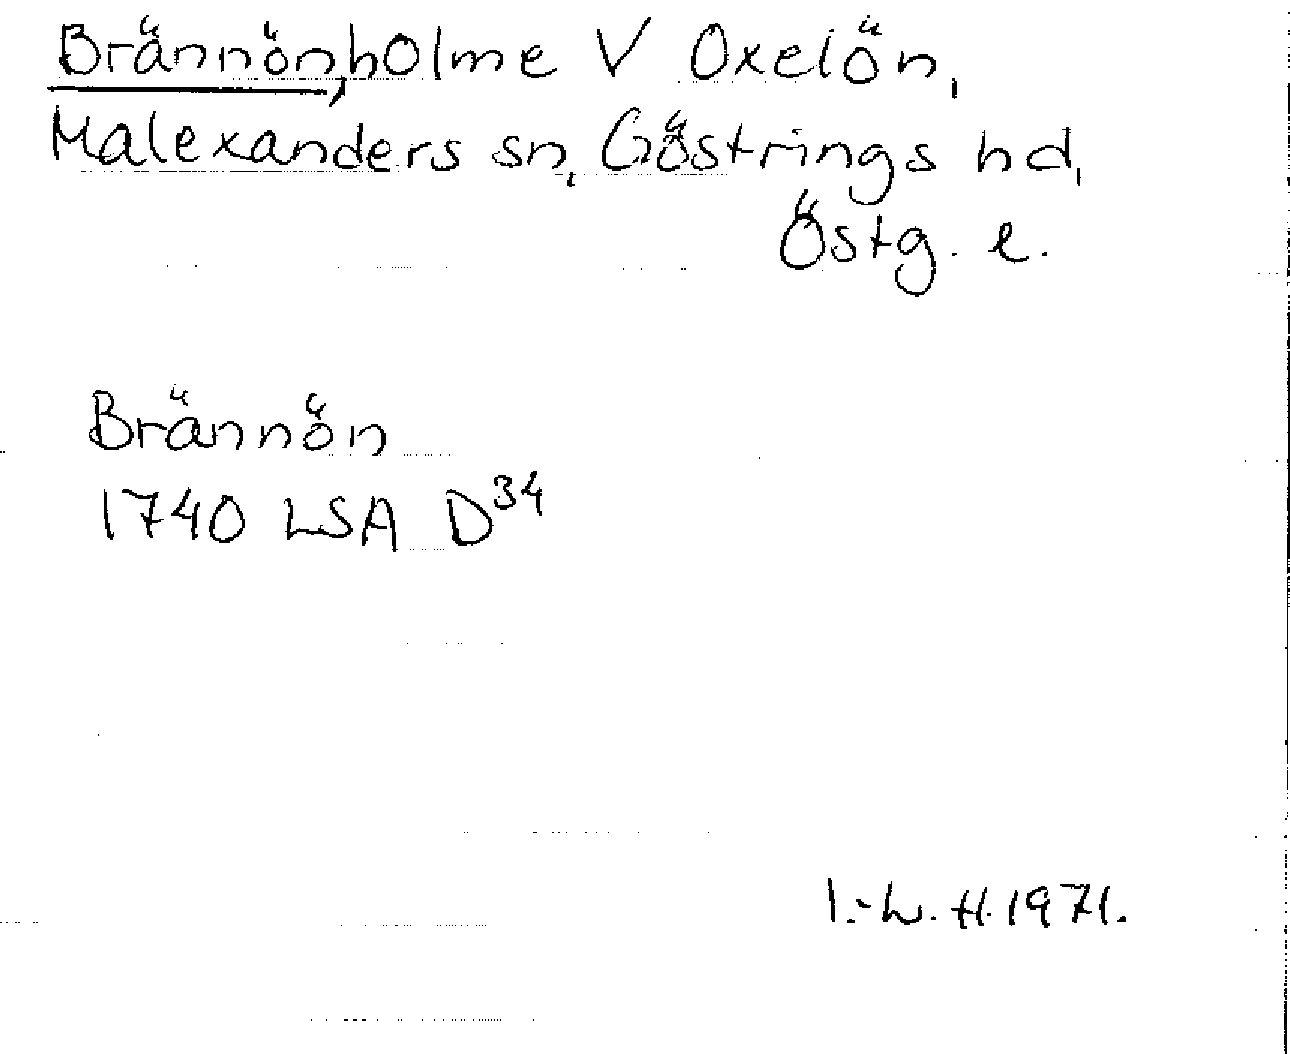 Brännön, holme V Oxelön,
Malexanders sn, Göstrings hd,
Östg. l.
Brännön
1740 LSA D³⁴
I.-L. H. 1971.